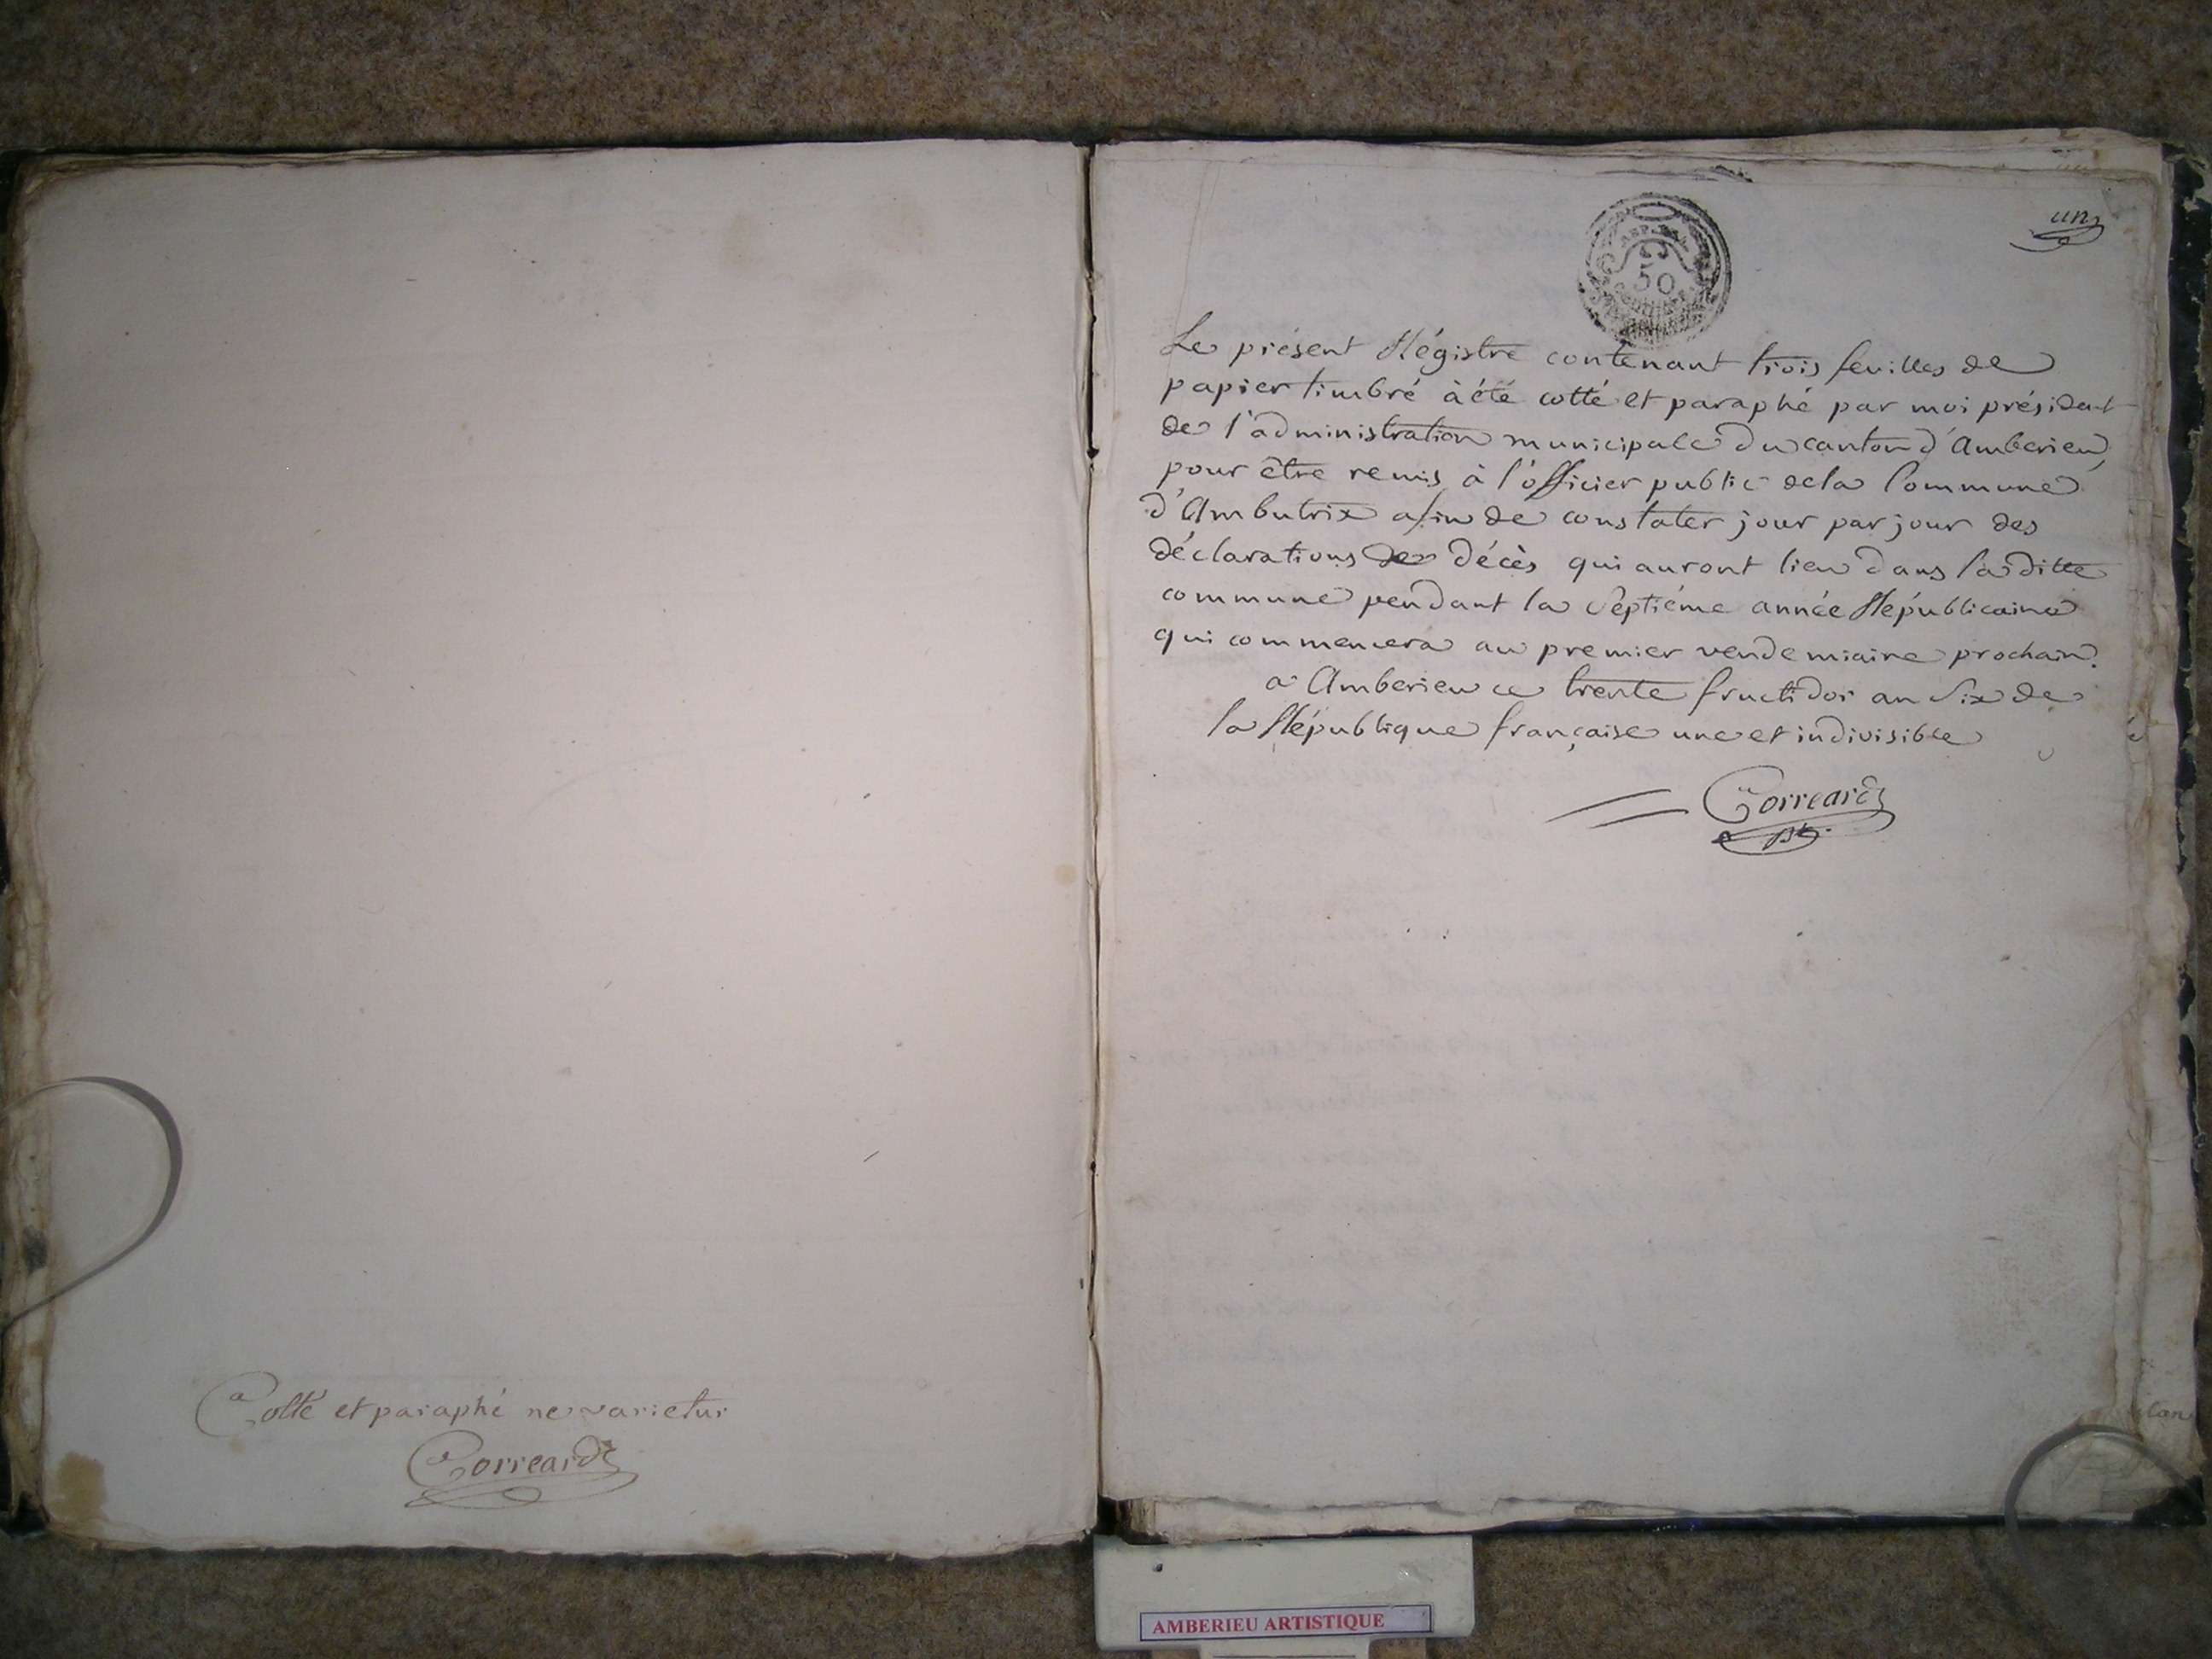 Cotté et paraphé ne varietur
Correard
un
REP. FRA.
50
Le présent Régistre contenant trois feuilles de
papier timbré à été cotté et paraphé par moi président
de l'administration municipale du canton d'Amberieu,
pour être remis à l'officier public de la Commune
d'Ambutrix afin de constater jour par jour des
déclarations de Décès qui auront lieu dans la ditte
commune pendant la Septiéme année Républicaine
qui commencera au premier vendemiaire prochain.
a Amberieu ce trente fructidor an Six de
la République française une et indivisible
Correard
pst.
AMBERIEU ARTISTIQUE